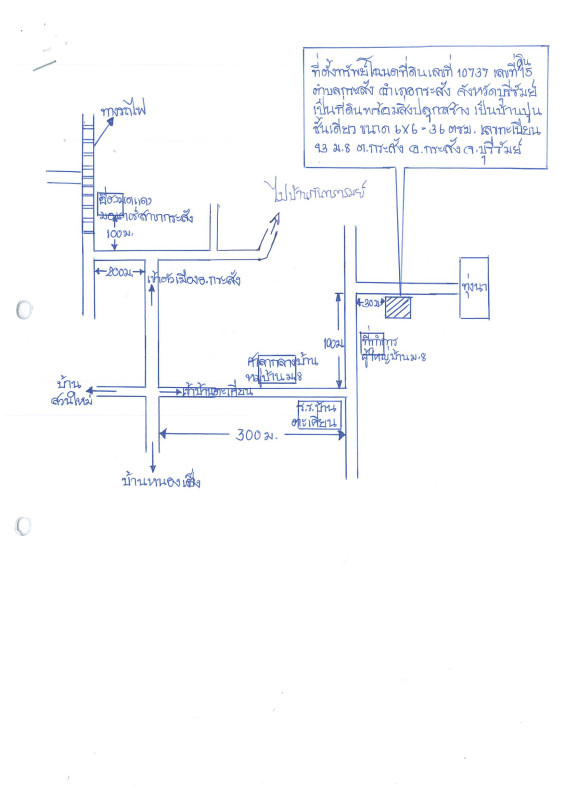 ที่ตั้งทรัพย์โฉนดที่ดินเลขที่ 10737 เลขที่ดิน 15
ตำบลกระสัง อำเภอกระสัง จังหวัดบุรีรัมย์
เป็นที่ดินพร้อมสิ่งปลูกสร้าง เป็นบ้านปูน
ชั้นเดียว ขนาด 6x6 - 36 ตรม. เลขทะเบียน
93 ม.8 ต.กระสัง อ.กระสัง จ.บุรีรัมย์
ทางรถไฟ
ไปบ้านกันทรารมย์
สาขากระสัง
100 ม.
200 ม.
เข้าตัวเมืองอ.กระสัง
ทุ่งนา
30 ม
100 ม
ที่ทำการ
ผู้ใหญ่บ้าน ม.8
ศาลากลางบ้าน
หมู่บ้าน ม.8
บ้าน
สวนใหม่
เข้าบ้านตะเคียน
ร.ร.บ้าน
ตะเคียน
300 ม.
บ้านหนองเต็ง